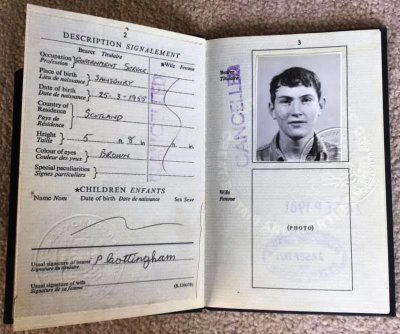 2
DESCRIPTION SIGNALEMENT
Bearer Titulaire *Wife Femme
Occupation
Profession GOVERNMENT SERVICE
Place of birth
Lieu de naissance SALISBURY
Date of birth
Date de naissance 25-3-1955
Country of
Residence
Pays de
Résidence SCOTLAND
Height
Taille 5 ft 8 in
Colour of eyes
Couleur des yeux BROWN
Special peculiarities
Signes particuliers
*CHILDREN ENFANTS
Name Nom Date of birth Date de naissance Sex Sexe
Usual signature of bearer
Signature du titulaire P Cottingham
Usual signature of wife
Signature de sa femme
3
Bearer
Titulaire
CANCELLED
Wife
Femme
SEP 1981
(PHOTO)